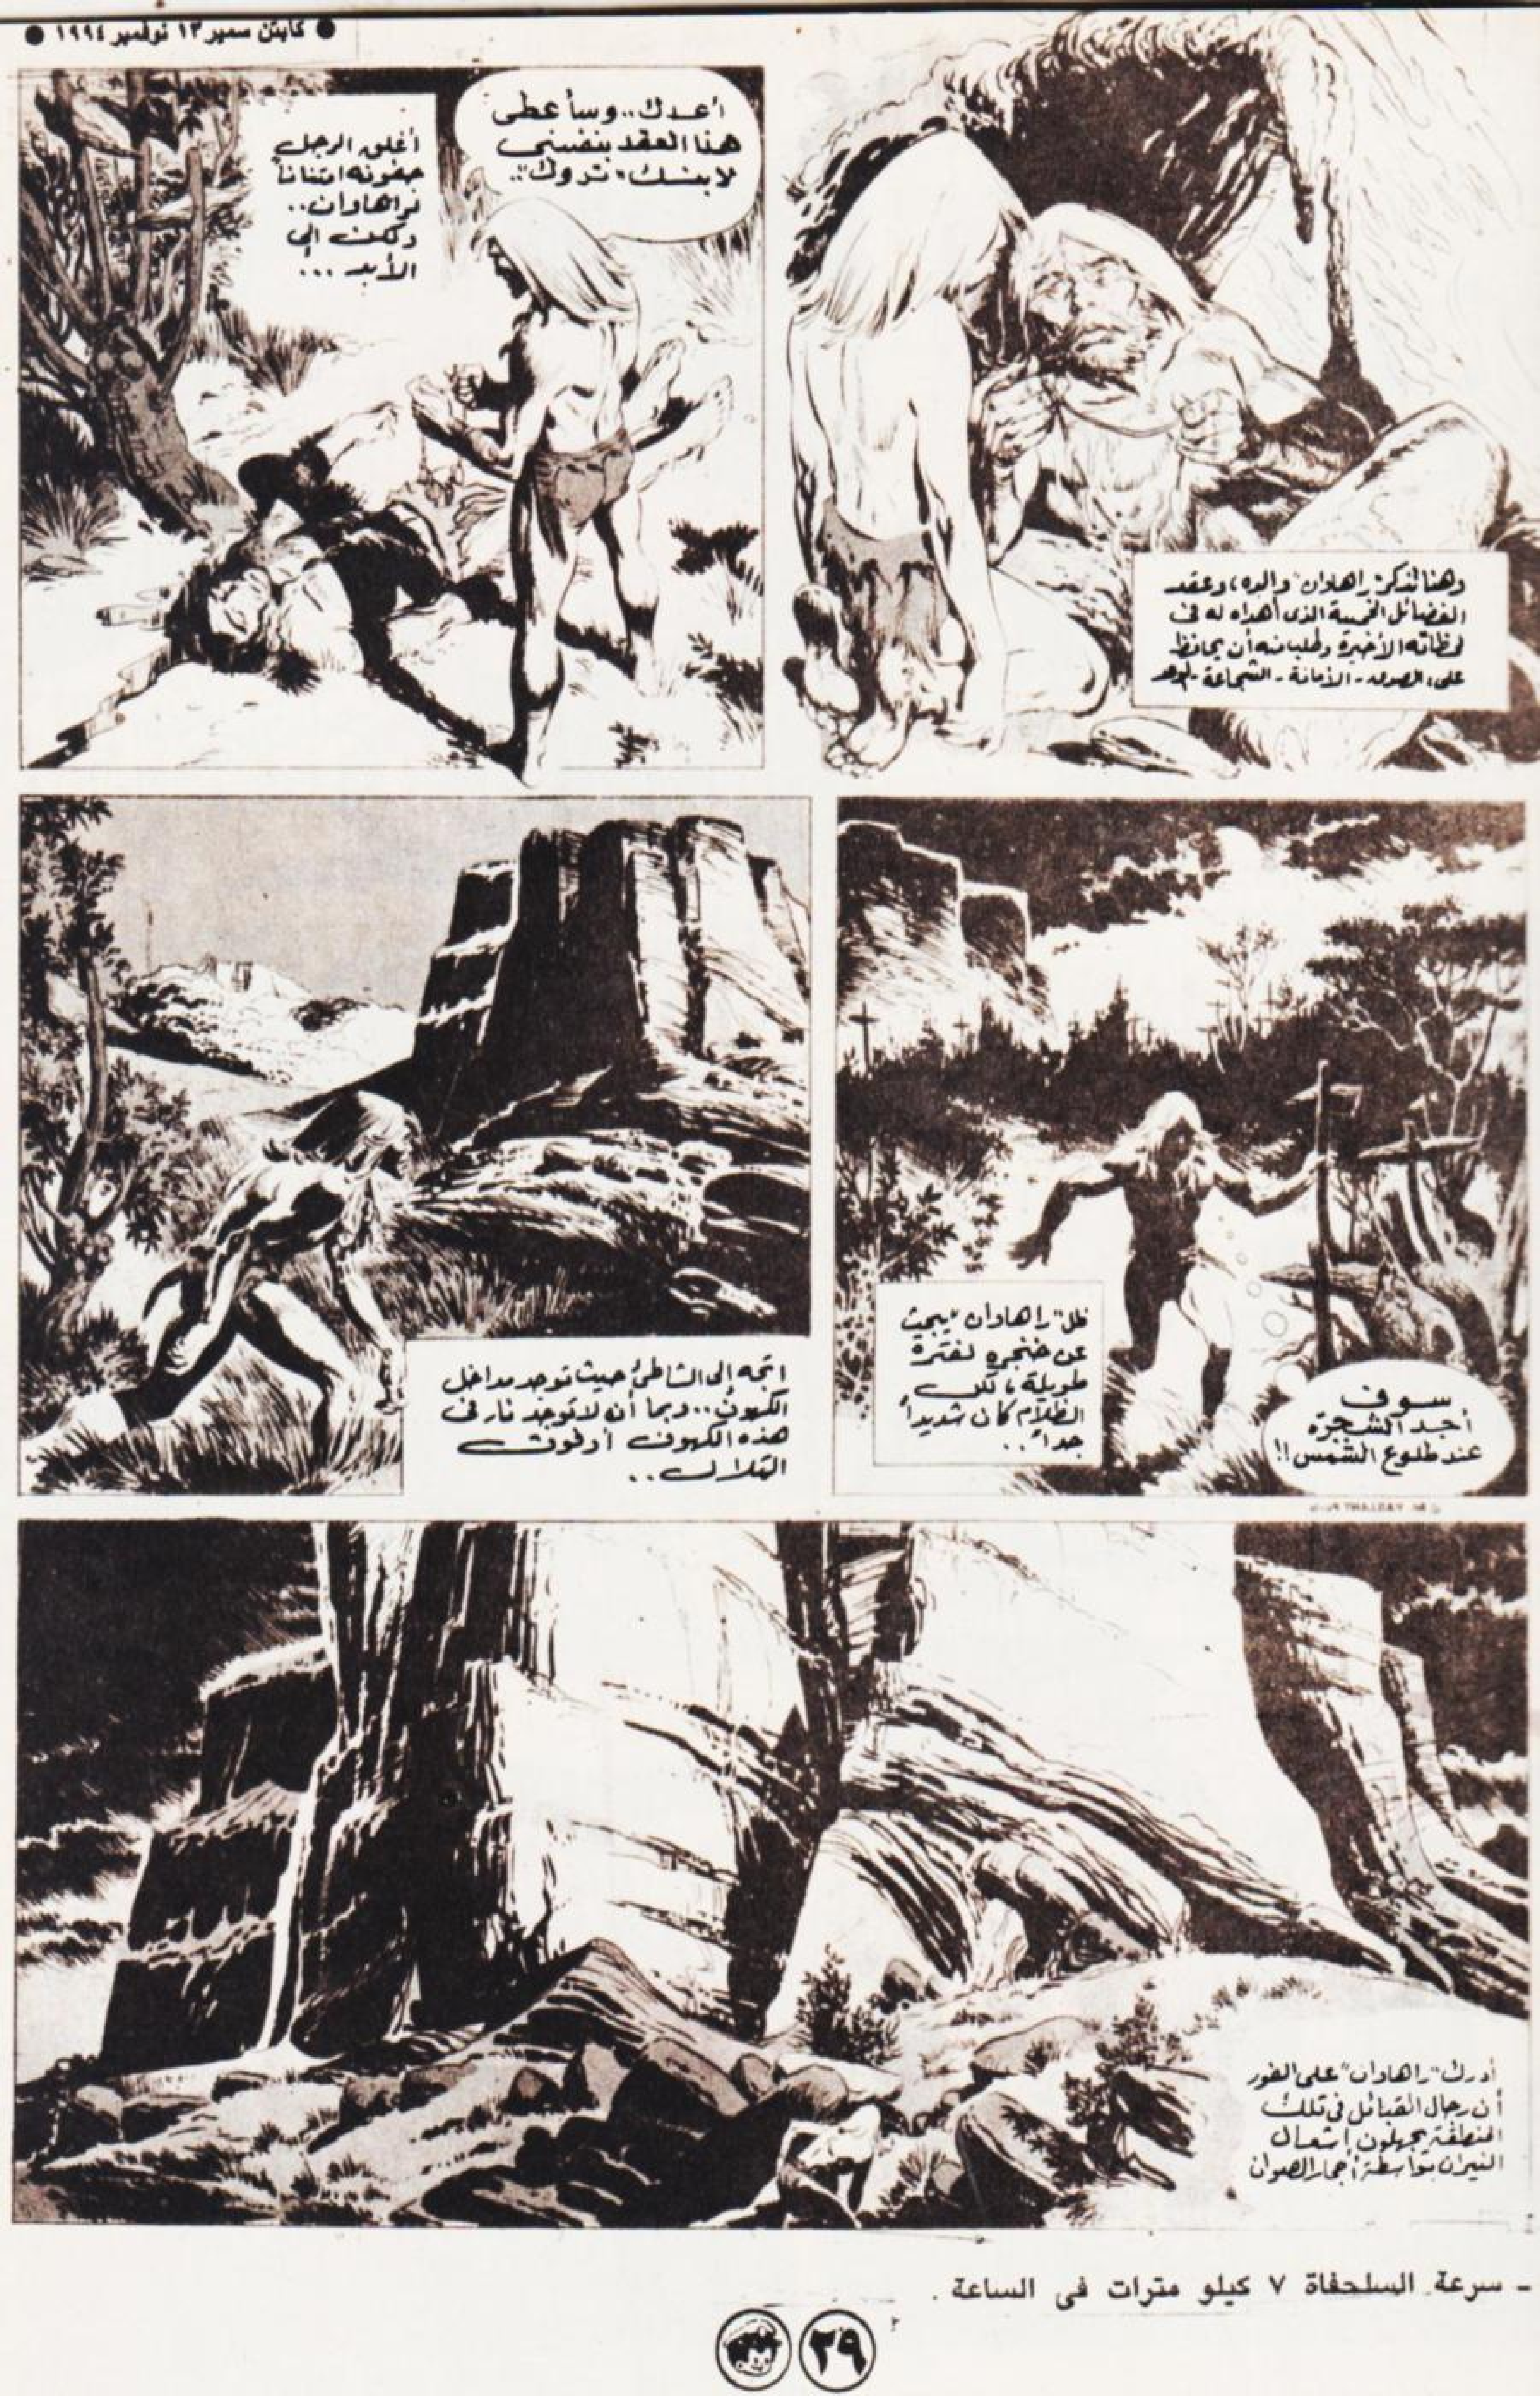 ● كابتن سمير ١٣ نوفمبر ١٩٩٤ ●
وهنا تذكر "راهاوان" والده، وعقد
الفضائل الخمسة الذى أهداه له فى
لحظاته الأخيرة وطلب منه أن يحافظ
على: الصدق - الأمانة - الشجاعة -
أعدك.. وسأعطى
هذا العقد بنفسى
لابنك "تروك"..
أغلق الرجل
جفونه امتناناً
لراهاوان..
ولكن إلى
الأبد ...
ظل "راهاوان" يبحث
عن خنجره لفترة
طويلة، لكن
الظلام كان شديداً
جداً..
سوف
أجد الشجرة
عند طلوع الشمس!!
اتجه إلى الشاطئ حيث توجد مداخل
الكهوف.. وبما أن لا توجد نار فى
هذه الكهوف أو فوق
التلال..
أدرك "راهاوان" على الفور
أن رجال القبائل فى تلك
المنطقة يجهلون إشعال
النيران بواسطة أحجار الصوان
- سرعة السلحفاة ٧ كيلو مترات فى الساعة .
٣٩